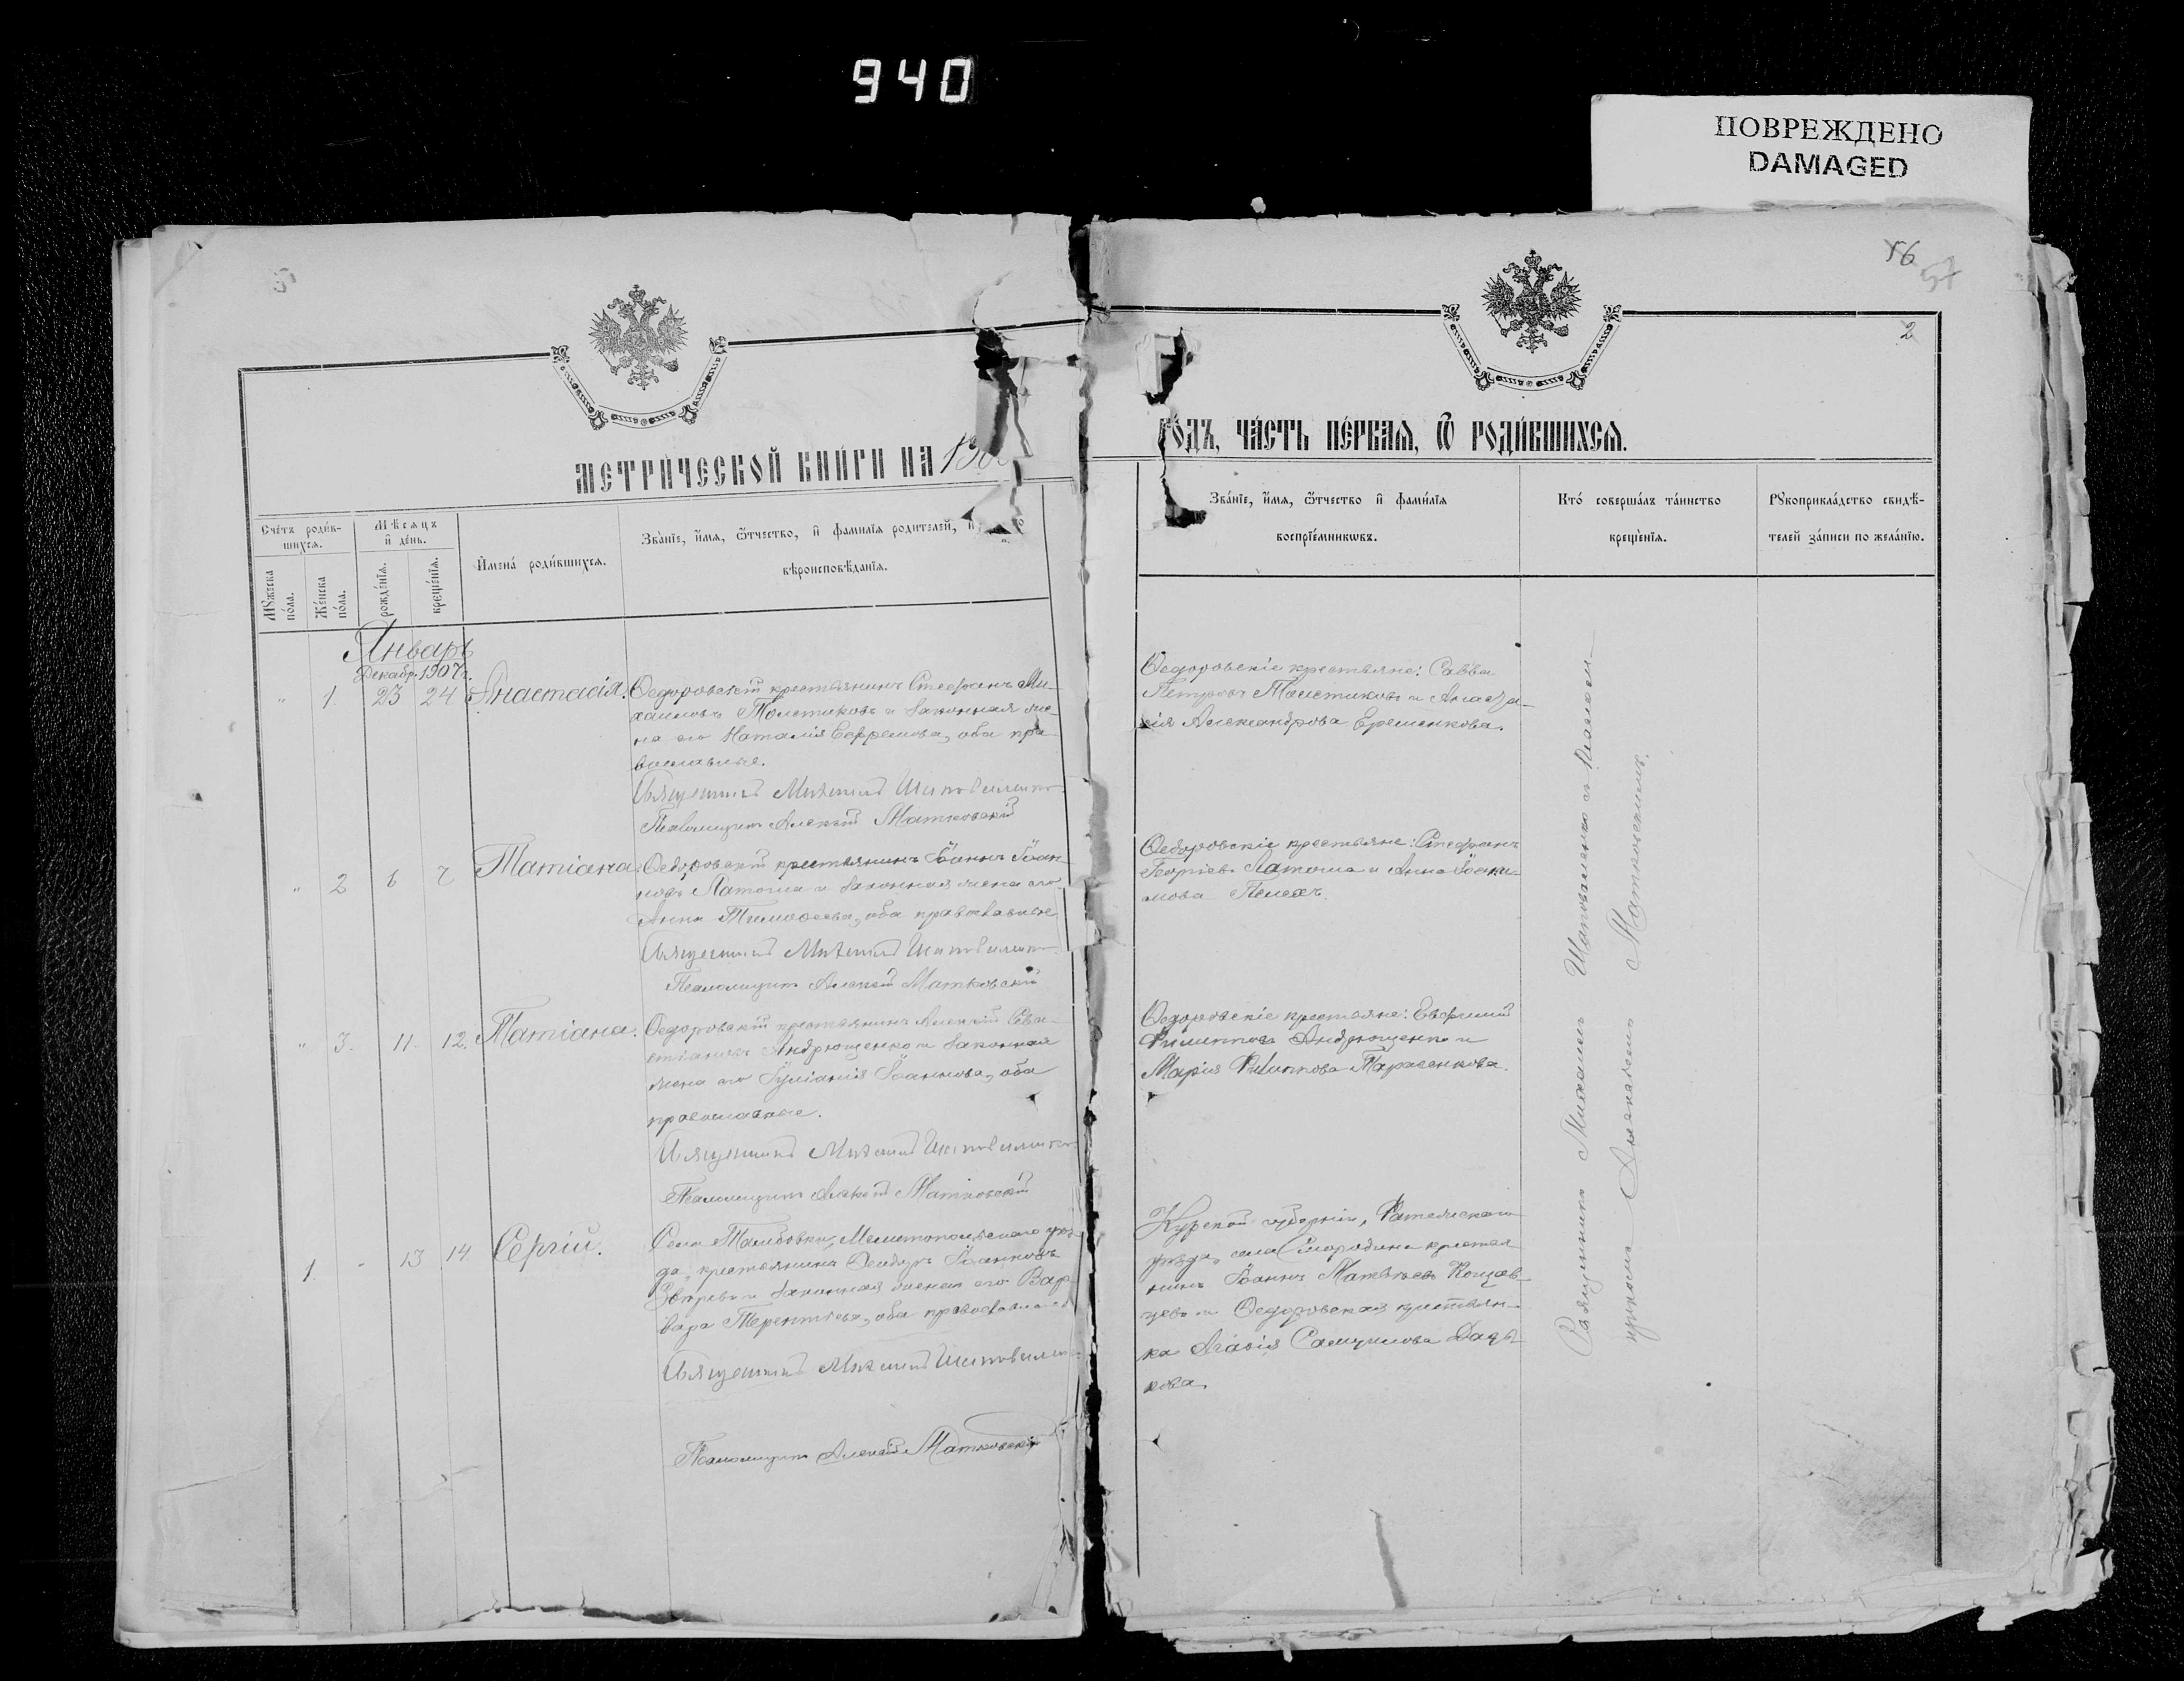 940
ПОВРЕЖДЕНО
DAMAGED
56
57
2
МЕТРИЧЕСКОЙ КНИГИ НА 190
ГОДЪ, ЧАСТЬ ПЕРВАЯ, Ѿ РОДИВШИХСЯ.
Счетъ родив-
шихся.
Мѣсяцъ
и день.
Мужеска
пола.
Женска
пола.
рожденія.
крещенія.
Имена родившихся.
Званіе, имя, ѿтчество, и фамилія родителей, и
вѣроисповѣданія.
Званіе, имя, ѿтчество и фамилія
воспріемниковъ.
Кто совершалъ таинство
крещенія.
Рукоприкладство свидѣ-
телей записи по желанію.
Январь
Декабр. 1907 г.
" 1 23 24 Анастасія.
Ѳедоровскій крестьянинъ Стефанъ Ми-
хаиловъ Толстиковъ и законная же-
на его Наталія Ефремова, оба пра-
вославные.
Священникъ Михаилъ Шаповаленко
Псаломщикъ Алексій Матковскій
Ѳедоровскіе крестьяне: Савва
Петровъ Толстиковъ и Анаста-
сія Александрова Еременкова.
" 2 6 7 Татіана.
Ѳедоровскій крестьянинъ Іоаннъ Іоан-
новъ Латоша и законная жена его
Анна Тимоѳеева, оба православные
Священникъ Михаилъ Шаповаленко
Псаломщикъ Алексій Матковскій
Ѳедоровскіе крестьяне: Стефанъ
Георгіевъ Латоша и Анна Іоаки-
мова Пелехъ.
" 3. 11. 12. Татіана.
Ѳедоровскій крестьянинъ Алексій Сева-
стіановъ Андрющенко и законная
жена его Іуліанія Іоаннова, оба
православные.
Священникъ Михаилъ Шаповаленко
Псаломщикъ Алексій Матковскій
Ѳедоровскіе крестьяне: Евфимій
Филипповъ Андрющенко и
Марія Филиппова Тарасенкова.
1 - 13 14 Сергій.
Села Тамбовки, Мелитопольскаго уѣз-
да, крестьянинъ Ѳеодоръ Іоанновъ
Звѣревъ и законная жена его Вар-
вара Терентіева, оба православные
Священникъ Михаилъ Шаповаленко
Псаломщикъ Алексій Матковскій
Курской губерніи, Фатежскаго
уѣзда, села Смородина крестья-
нинъ Іоаннъ Матвѣевъ
и Ѳедоровская крестьян-
ка Агафія Самуилова Дядь-
кова.
Священникъ Михаилъ Шаповаленко съ Псалом-
щикомъ Алексѣемъ Матковскимъ.